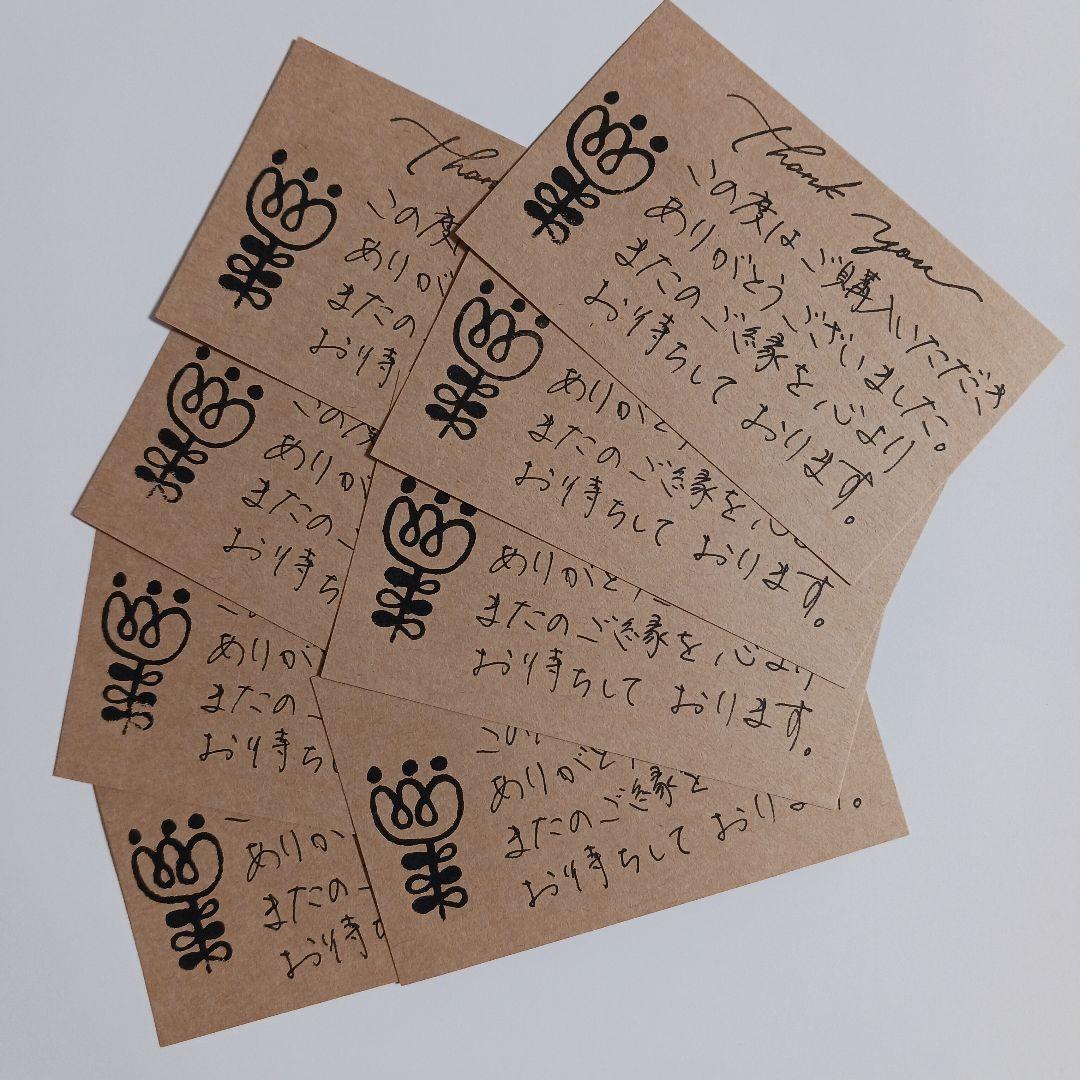 Thank you
この度はご購入いただき
ありがとうございました。
またのご縁を心より
お待ちして おります。
Than
この度
ありが
またの
お待
ありがと
またのご縁を心
お待ちして おります。
この度
ありが
またの
お待ち
ありがと
またのご縁を心より
お待ちして おります。
ありが
またの
お待ち
この
ありがと
またのご縁を
お待ちして おります。
ありが
またの
お待